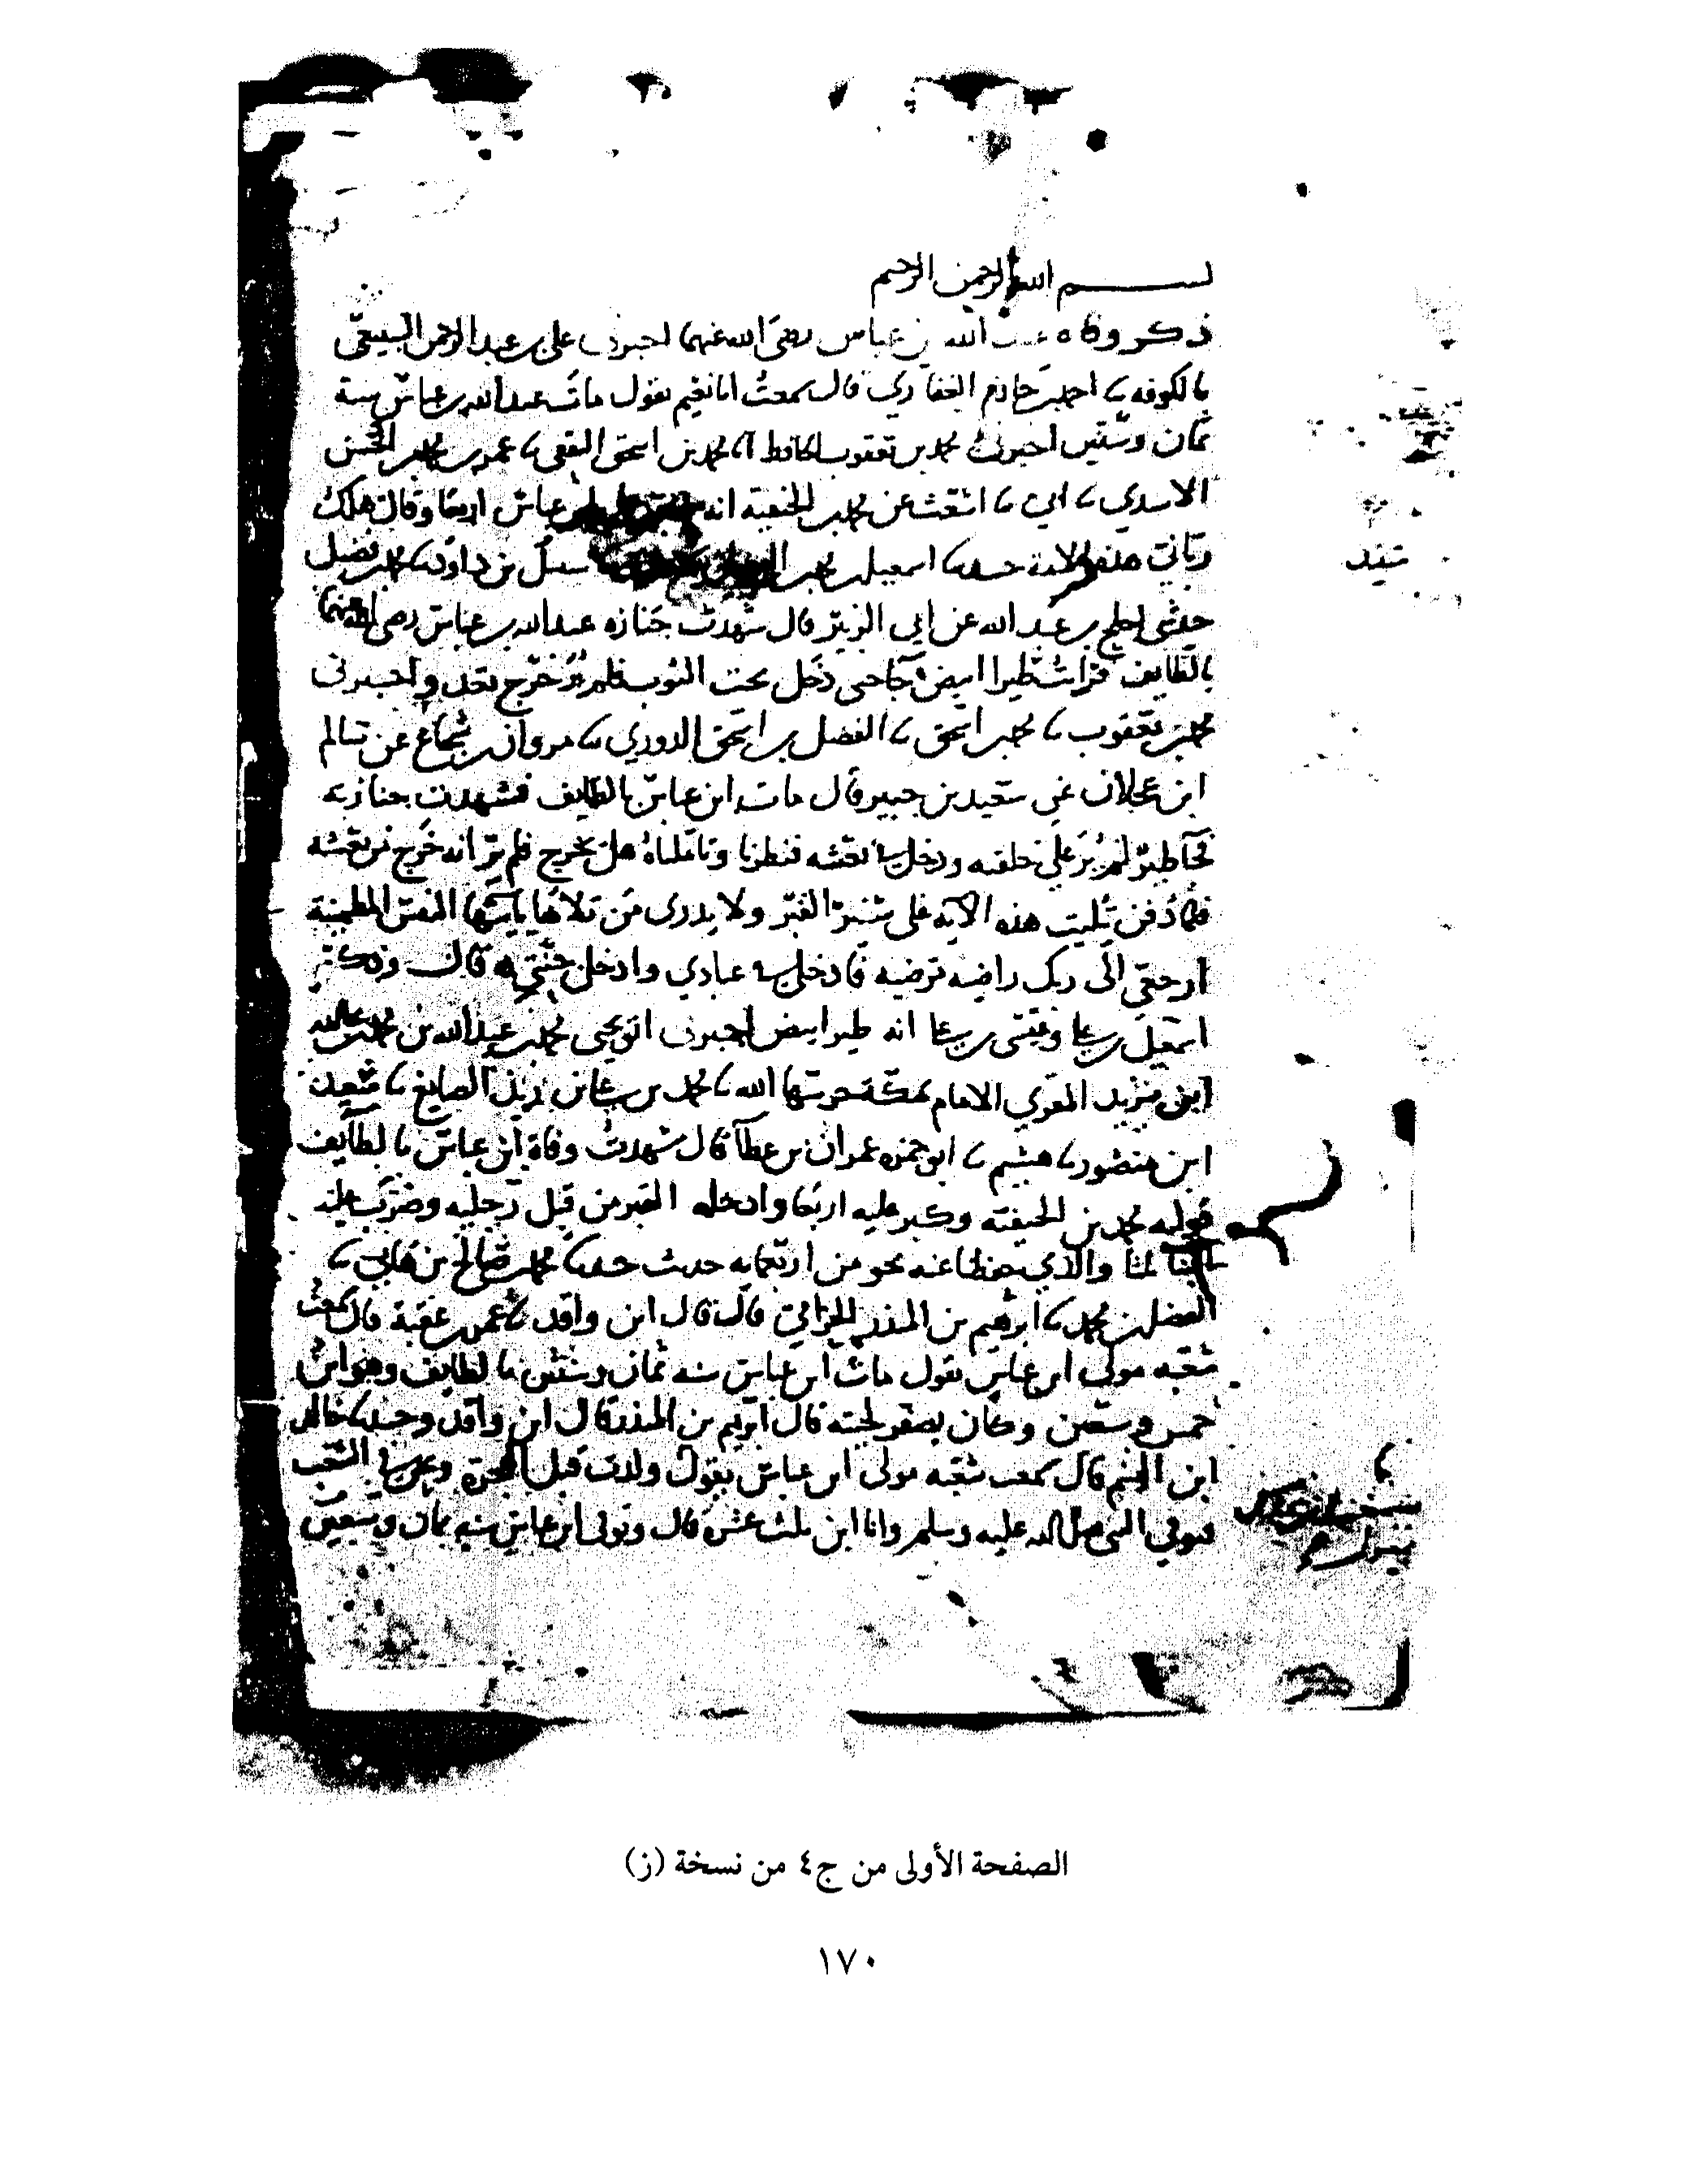 بسم الله الرحمن الرحيم
ذكر وفاه عبد الله بن عباس رضى الله عنهما اخبرنى على بن عبد الرحمن السبيعى
بالكوفه ثنا احمد بن حازم الغفاري قال سمعت ابا نعيم يقول مات عبد الله بن عباس سنة
ثمان وستين اخبرنى محمد بن يعقوب الحافظ انا محمد بن اسحق الثقفى ثنا عمر بن محمد بن الحسن
الاسدي ثنا ابي ثنا اشعث عن محمد بن الحنفية انه عباس اربعا وقال هلك
ربانى هذه الامة حدثنا اسمعيل بن محمد بن بن داود ثنا محمد بن فضيل
حدثنى اجلح بن عبد الله عن ابي الزبير قال شهدت جنازه عبد الله بن عباس رضى الله عنهما
بالطايف فرايت طيرا ابيض جا حتى دخل تحت الثوب فلم ير خرج بعد واخبرنى
محمد بن يعقوب ثنا محمد بن اسحق ثنا الفضل بن اسحق الدوري ثنا مروان بن شجاع عن سالم
ابن عجلان عن سعيد بن جبير قال مات ابن عباس بالطايف فشهدت جنازته
فجا طير لم ير على خلقته ودخل في نعشه فنظرنا وتاملناه هل يخرج فلم ير انه خرج من نعشه
فلما دفن تليت هذه الآيه على شفير القبر ولا يدرى من تلاها يايتها النفس المطمينة
ارجعى الى ربك راضيه مرضيه فادخلي في عبادي وادخلى جنتى قال وذكر
اسمعيل بن على وعيسى بن على انه طير ابيض اخبرنى ابو يحيى محمد بن عبد الله بن محمد بن عبد الله
ابن يزيد المقري الامام بمكة حرسها الله ثنا محمد بن على بن زيد الصايغ ثنا سعيد
ابن منصور ثنا هشيم ثنا ابو حمزه عمران بن عطآ قال شهدت وفاة ابن عباس بالطايف
فوليه محمد بن الحنفيه وكبر عليه اربعا وادخله القبر من قبل رجليه وضرب عليه
البنا ثلثا والذي حفظنا عنه نحو من اربعمايه حديث حدثنا محمد بن صالح بن هاني ثنا
الفضل بن محمد ثنا ابرهيم بن المنذر الحزامي قال قال ابن واقد ثنا عمر بن عقبة قال سمعت
شعبه مولى ابن عباس يقول مات ابن عباس سنه ثمان وستين بالطايف وهو ابن
وسبعين وكان يصفر لحيته قال ابرهيم بن المنذر قال ابن واقد وحدثنا خالد
ابن قال سمعت شعبه مولى ابن عباس يقول ولدت قبل الهجرة ونحن في الشعب
فتوفي النبى صلى الله عليه وسلم وانا ابن ثلث عشرة قال وتوفى ابن عباس سنه ثمان وستين
الصفحة الأولى من ج٤ من نسخة (ز)
١٧٠